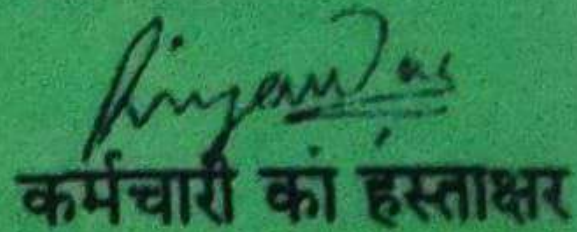 कर्मचारी कां हस्ताक्षर